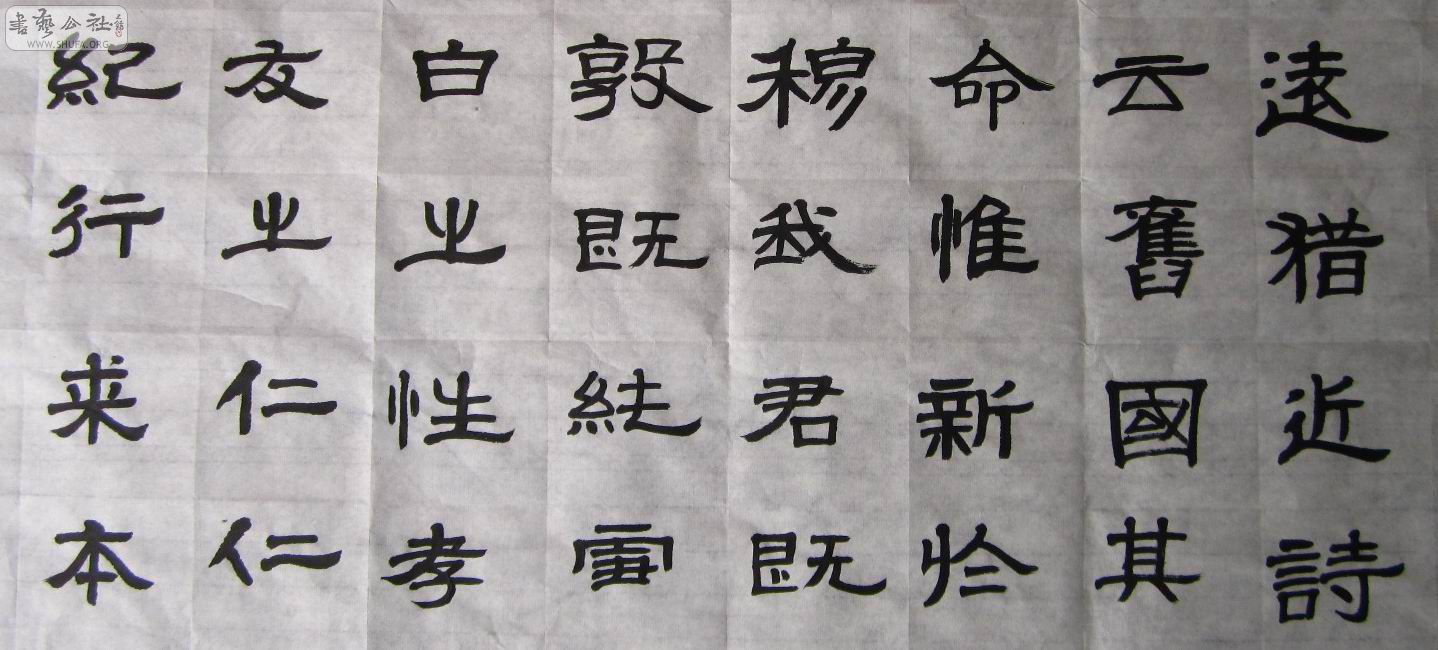 書藝公社
WWW.SHUFA.ORG
遠猶近詩
云舊國其
命惟新於
穆我君既
敦既純雪
白之性孝
友之仁仁
紀行来本